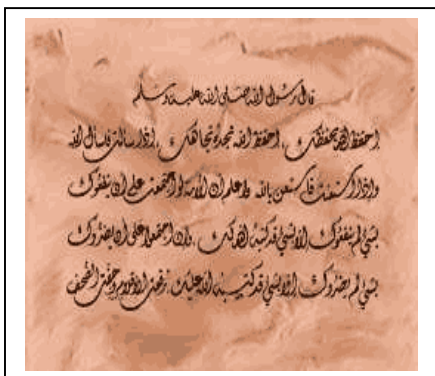 قال رسول الله صلى الله عليه وسلم
احفظ الله يحفظك، احفظ الله تجده تجاهك، إذا سألت فاسأل الله
وإذا استعنت فاستعن بالله واعلم أن الأمة لو اجتمعت على أن ينفعوك
بشيء لم ينفعوك إلا بشيء قد كتبه الله لك، وإن اجتمعوا على أن يضروك
بشيء لم يضروك إلا بشيء قد كتبه الله عليك، رفعت الأقلام وجفت الصحف